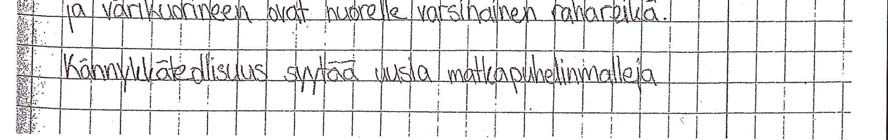 ja värikuorineen ovat nuorelle varsinainen rahareikä.
Kännykkäteollisuus syytää uusia matkapuhelinmalleja